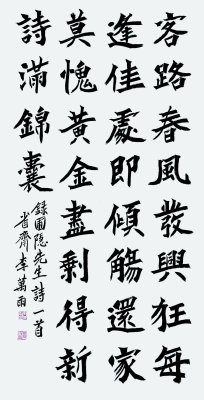 客路春風發興狂每
逢佳處即傾觴還家
莫愧黃金盡剩得新
詩滿錦囊
錄圃隱先生詩一首
省齊李萬雨